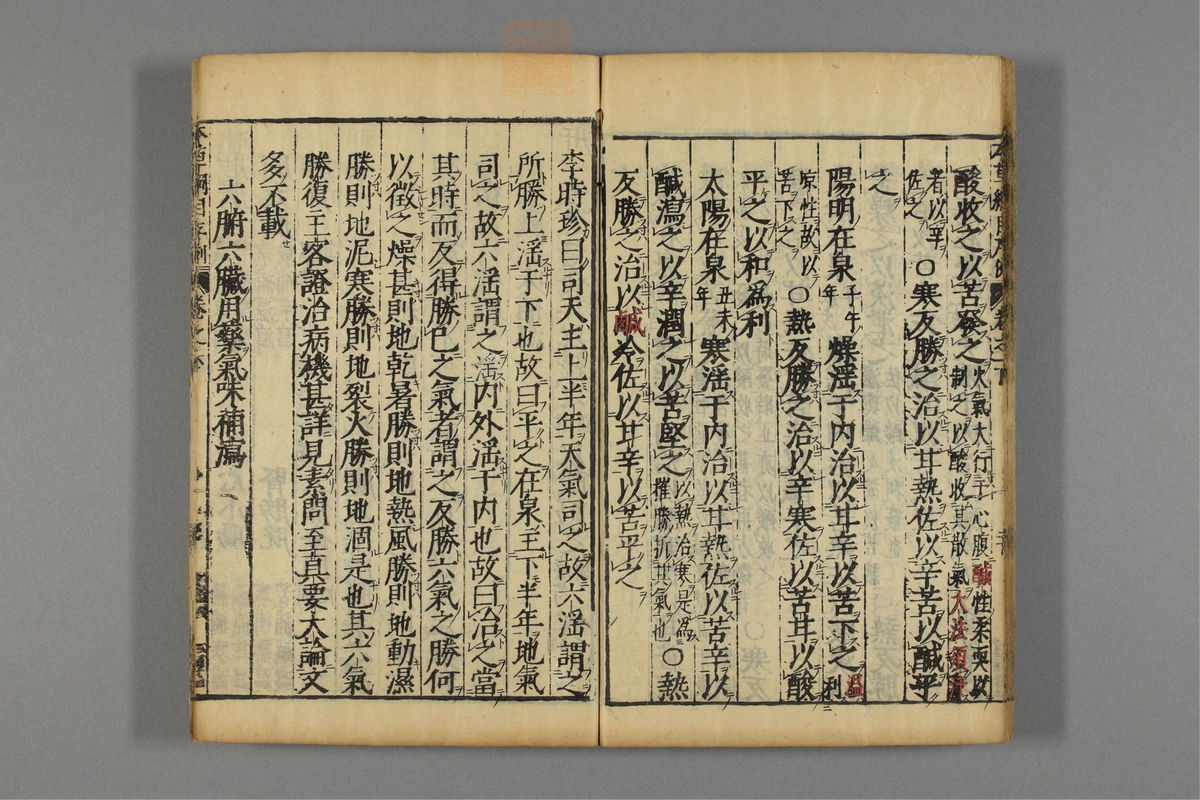 酸收之以苦發之火氣大行于心腹鹹性柔耎以制之以酸收其散氣大法須汗
者以辛佐之〇寒反勝之治以甘熱佐以辛苦以鹹平
之
陽明在泉子午年燥淫于内治以甘辛以苦下之温利
凉性故以苦下之〇熱反勝之治以辛寒佐以苦甘以酸
平之以和爲利
太陽在泉丑未年寒淫于内治以甘熱佐以苦辛以
鹹瀉之以辛潤之以苦堅之以熱治寒是爲摧勝折其氣也〇熱
反勝之治以鹹冷佐以甘辛以苦平之
李時珍曰司天主上半年天氣司之故六淫謂之
所勝上淫于下也故曰平之在泉主下半年地氣
司之故六淫謂之淫内外淫于内也故曰治之當
其時而反得勝已之氣者謂之反勝六氣之勝何
以徵之燥甚則地乾暑勝則地熱風勝則地動濕
勝則地泥寒勝則地裂火勝則地涸是也其六氣
勝復主客證治病機甚詳見素問至真要大論文
多不載
六腑六臟用藥氣味補瀉